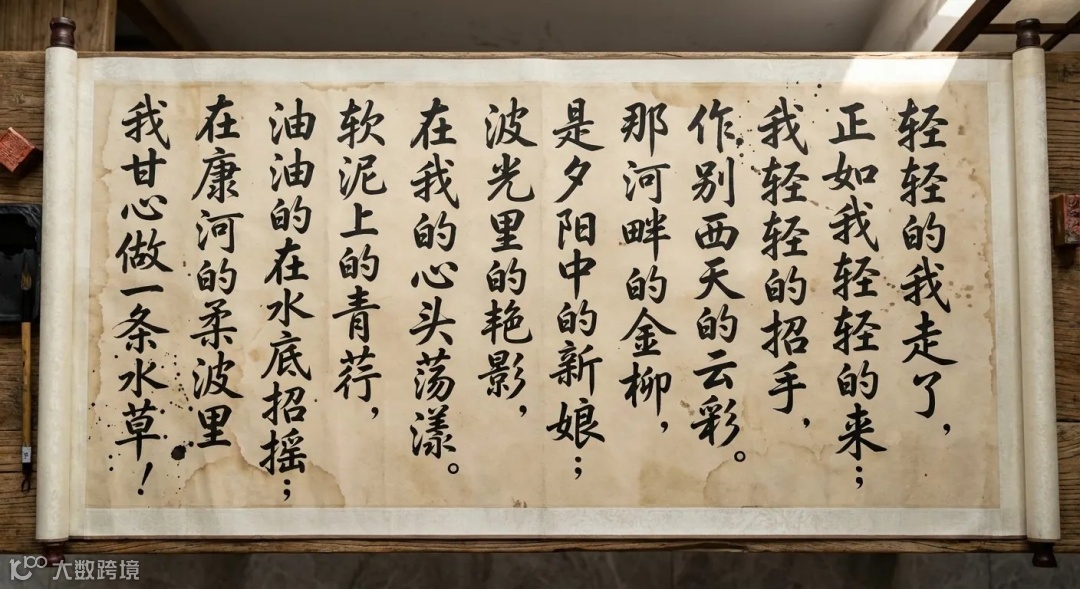 轻轻的我走了，
正如我轻轻的来；
我轻轻的招手，
作别西天的云彩。
那河畔的金柳，
是夕阳中的新娘；
波光里的艳影，
在我的心头荡漾。
软泥上的青荇，
油油的在水底招摇；
在康河的柔波里
我甘心做一条水草！
大数跨境